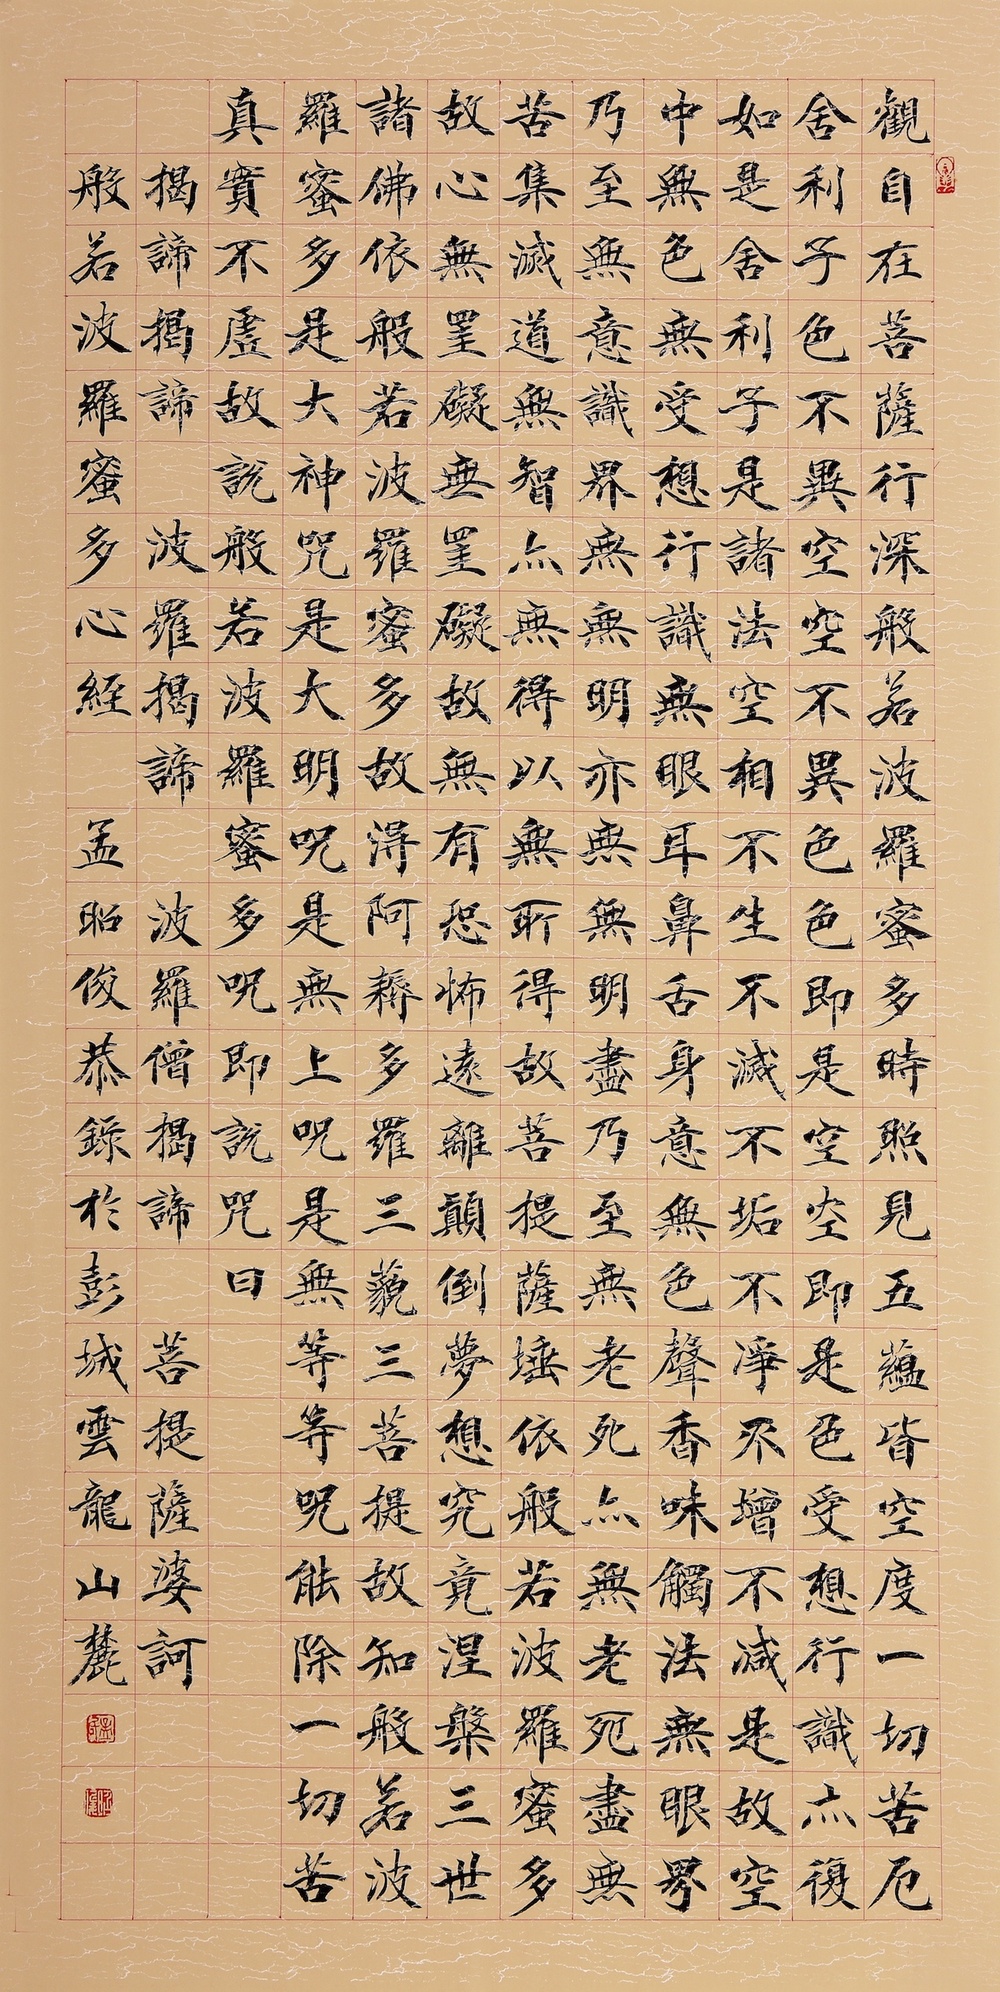 觀自在菩薩行深般若波羅蜜多時照見五蘊皆空度一切苦厄
舍利子色不異空空不異色色即是空空即是色受想行識亦復
如是舍利子是諸法空相不生不滅不垢不淨不增不減是故空
中無色無受想行識無眼耳鼻舌身意無色聲香味觸法無眼界
乃至無意識界無無明亦無無明盡乃至無老死亦無老死盡無
苦集滅道無智亦無得以無所得故菩提薩埵依般若波羅蜜多
故心無罣礙無罣礙故無有恐怖遠離顛倒夢想究竟涅槃三世
諸佛依般若波羅蜜多故得阿耨多羅三藐三菩提故知般若波
羅蜜多是大神咒是大明咒是無上咒是無等等咒能除一切苦
真實不虛故說般若波羅蜜多咒即說咒曰
揭諦揭諦 波羅揭諦 波羅僧揭諦 菩提薩婆訶
般若波羅蜜多心經 孟昭俊恭錄於彭城雲龍山麓